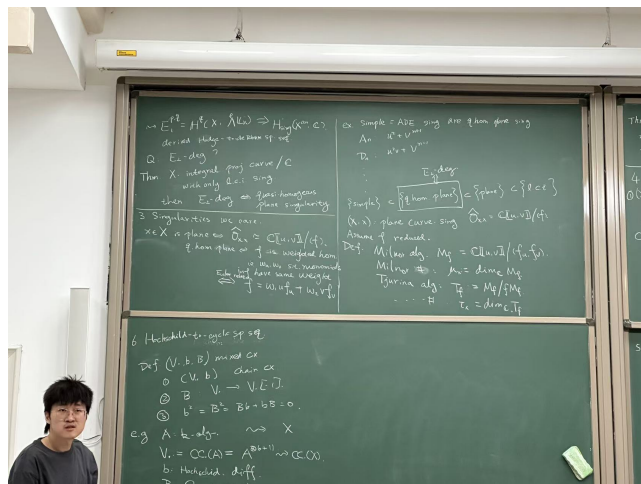 → E₁^{p,q} = H^q(X, Λ^p 𝕃_X) ⇒ H_sing(X^an, ℂ)
derived Hodge-to-de Rham sp seq
Q: E₁-deg ?
Thm X: integral proj curve / ℂ
with only l.c.i sing
then E₁-deg ⇔ quasi-homogeneous
plane singularity
3. Singularities we care.
x∈X is plane ⇔ Ô_{X,x} ≅ ℂ[[u,v]]/(f),
q hom plane ⇔ f is weighted hom
have same weight
⇔ f = w₁ u f_u + w₂ v f_v
ex. simple = ADE sing are q hom plane sing
Aₙ u² + v^{n+1}
Dₙ
E₁-deg
{simple} ⊂ {q hom plane} ⊂ {plane} ⊂ {l c i}
(X,x): plane curve sing Ô_{X,x} = ℂ[[u,v]]/(f).
Assume f reduced.
Def. Milnor alg. M_f = ℂ[[u,v]]/(f_u, f_v).
Milnor #: μₓ = dim_ℂ M_f
Tjurina alg: T_f = M_f / f M_f
---- #: τₓ = dim_ℂ T_f
6 Hochschild-to-cyclic sp seq
Def (V., b, B) mixed cx
① (V., b) chain cx
② B V. → V.[-1].
③ b² = B² = Bb + bB = 0.
e.g A: k-alg. ⇝ X
V. = CC.(A) = A^{⊗(n+1)} ⇝ CC.(X)
b: Hochschild. diff.